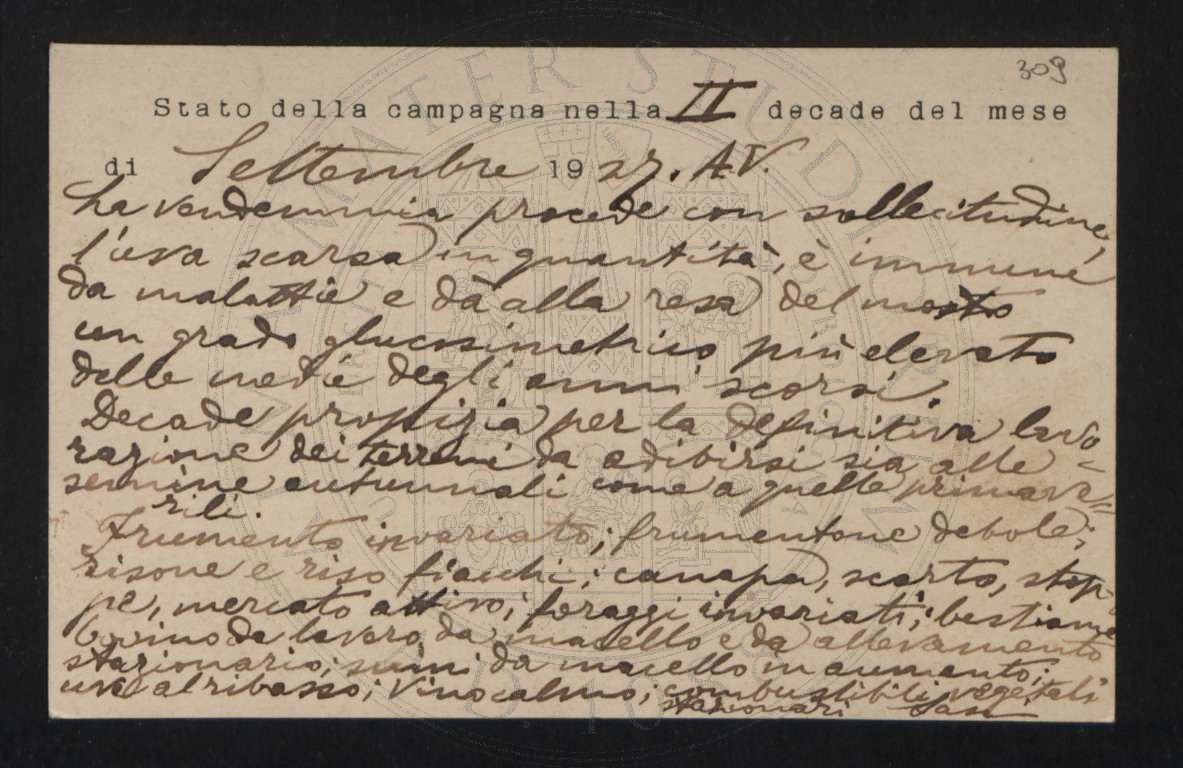 309
Stato della campagna nella II decade del mese
di Settembre 1927. A.V.
La vendemmia procede con sollecitudine,
l'uva scarsa in quantità, è immune
da malattie e dà alla resa del mosto
un grado glucosimetrico più elevato
delle medie degli anni scorsi.
Decade propizia per la definitiva lavo-
razione dei terreni da adibirsi sia alle
semine autunnali come a quelle primave-
rili.
Frumento invariato; frumentone debole;
risone e riso fiacchi; canapa, scarto, stop-
pe, mercato attivo; foraggi invariati; bestiame
bovino da lavoro da macello e da allevamento
stazionario; suini da macello in aumento;
uve al ribasso; vino calmo; combustibili vegetali
stazionari
ALMA MATER STUDIORUM